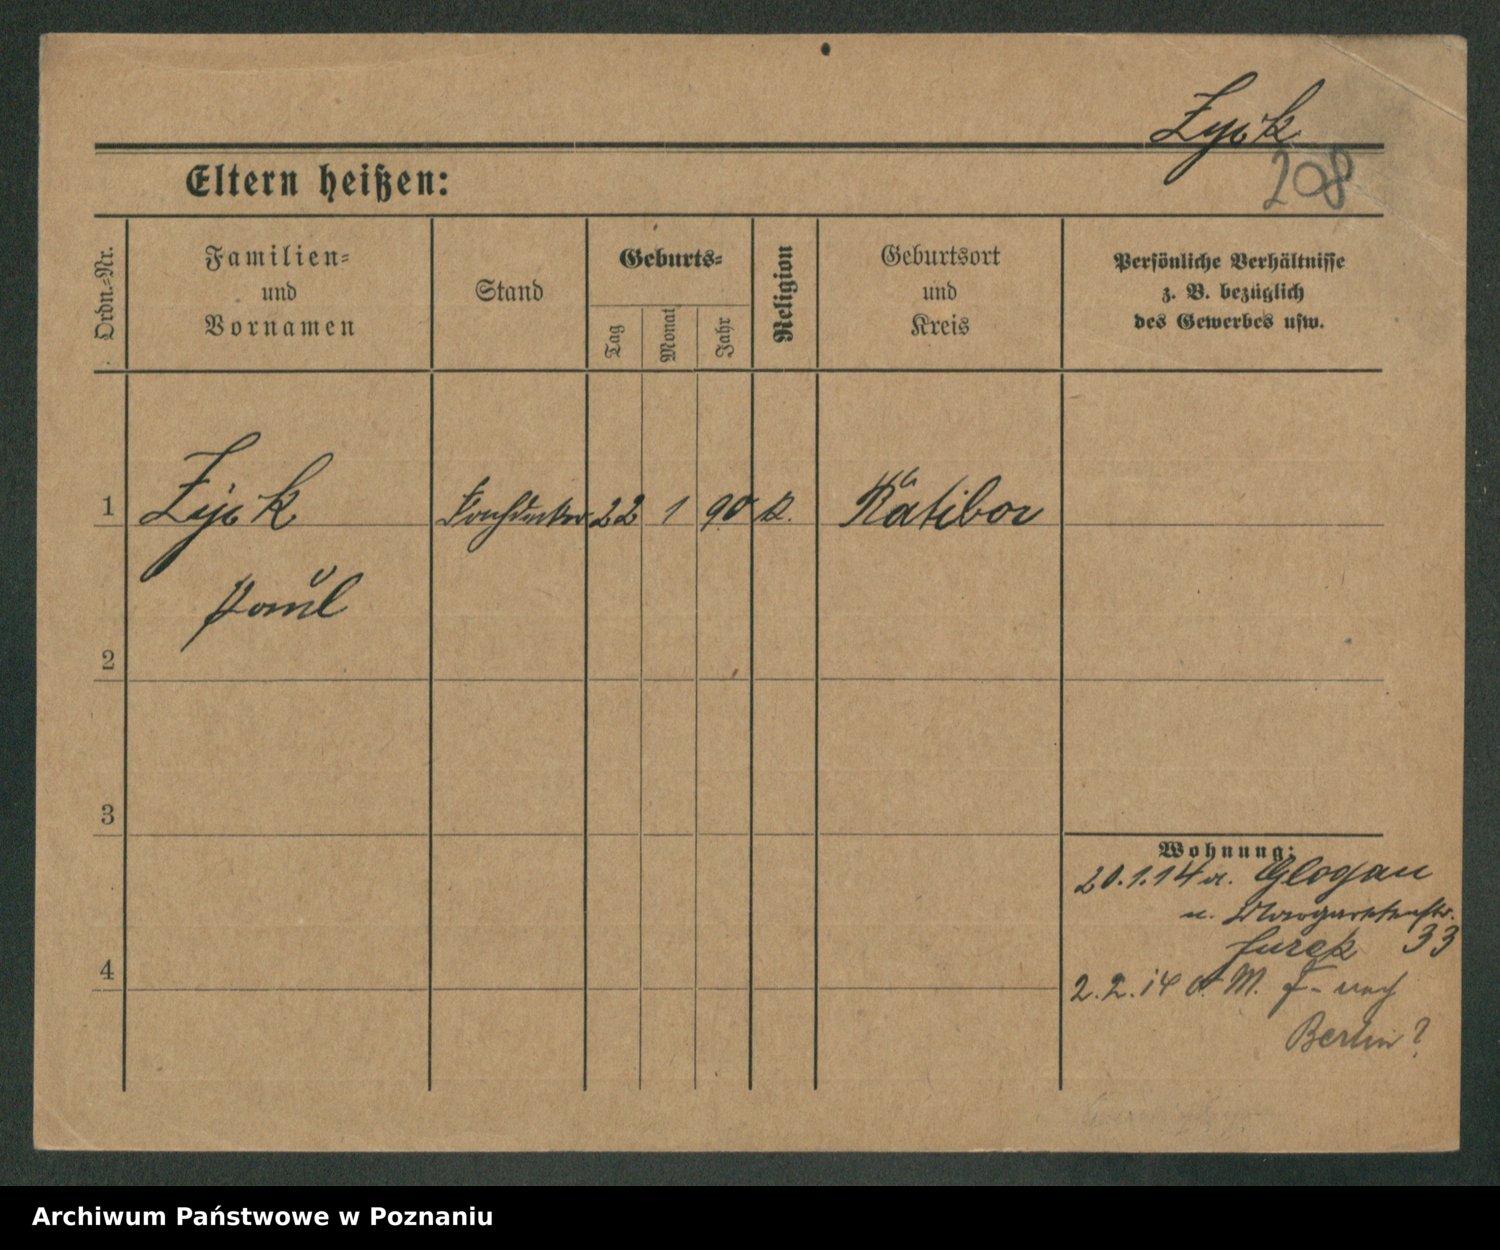 Zyik
208
Eltern heißen:
Ordn.-Nr.
Familien-
und
Vornamen
Stand
Geburts-
Tag
Monat
Jahr
Religion
Geburtsort
und
Kreis
Persönliche Verhältnisse
z. B. bezüglich
des Gewerbes usw.
1
22 1 90 k. Ratibor
Paul
2
3
4
Wohnung:
20.1.14 v. Glogau
Margaretenstr.
Jurek 33
2.2.14 nach
Berlin?
Archiwum Państwowe w Poznaniu